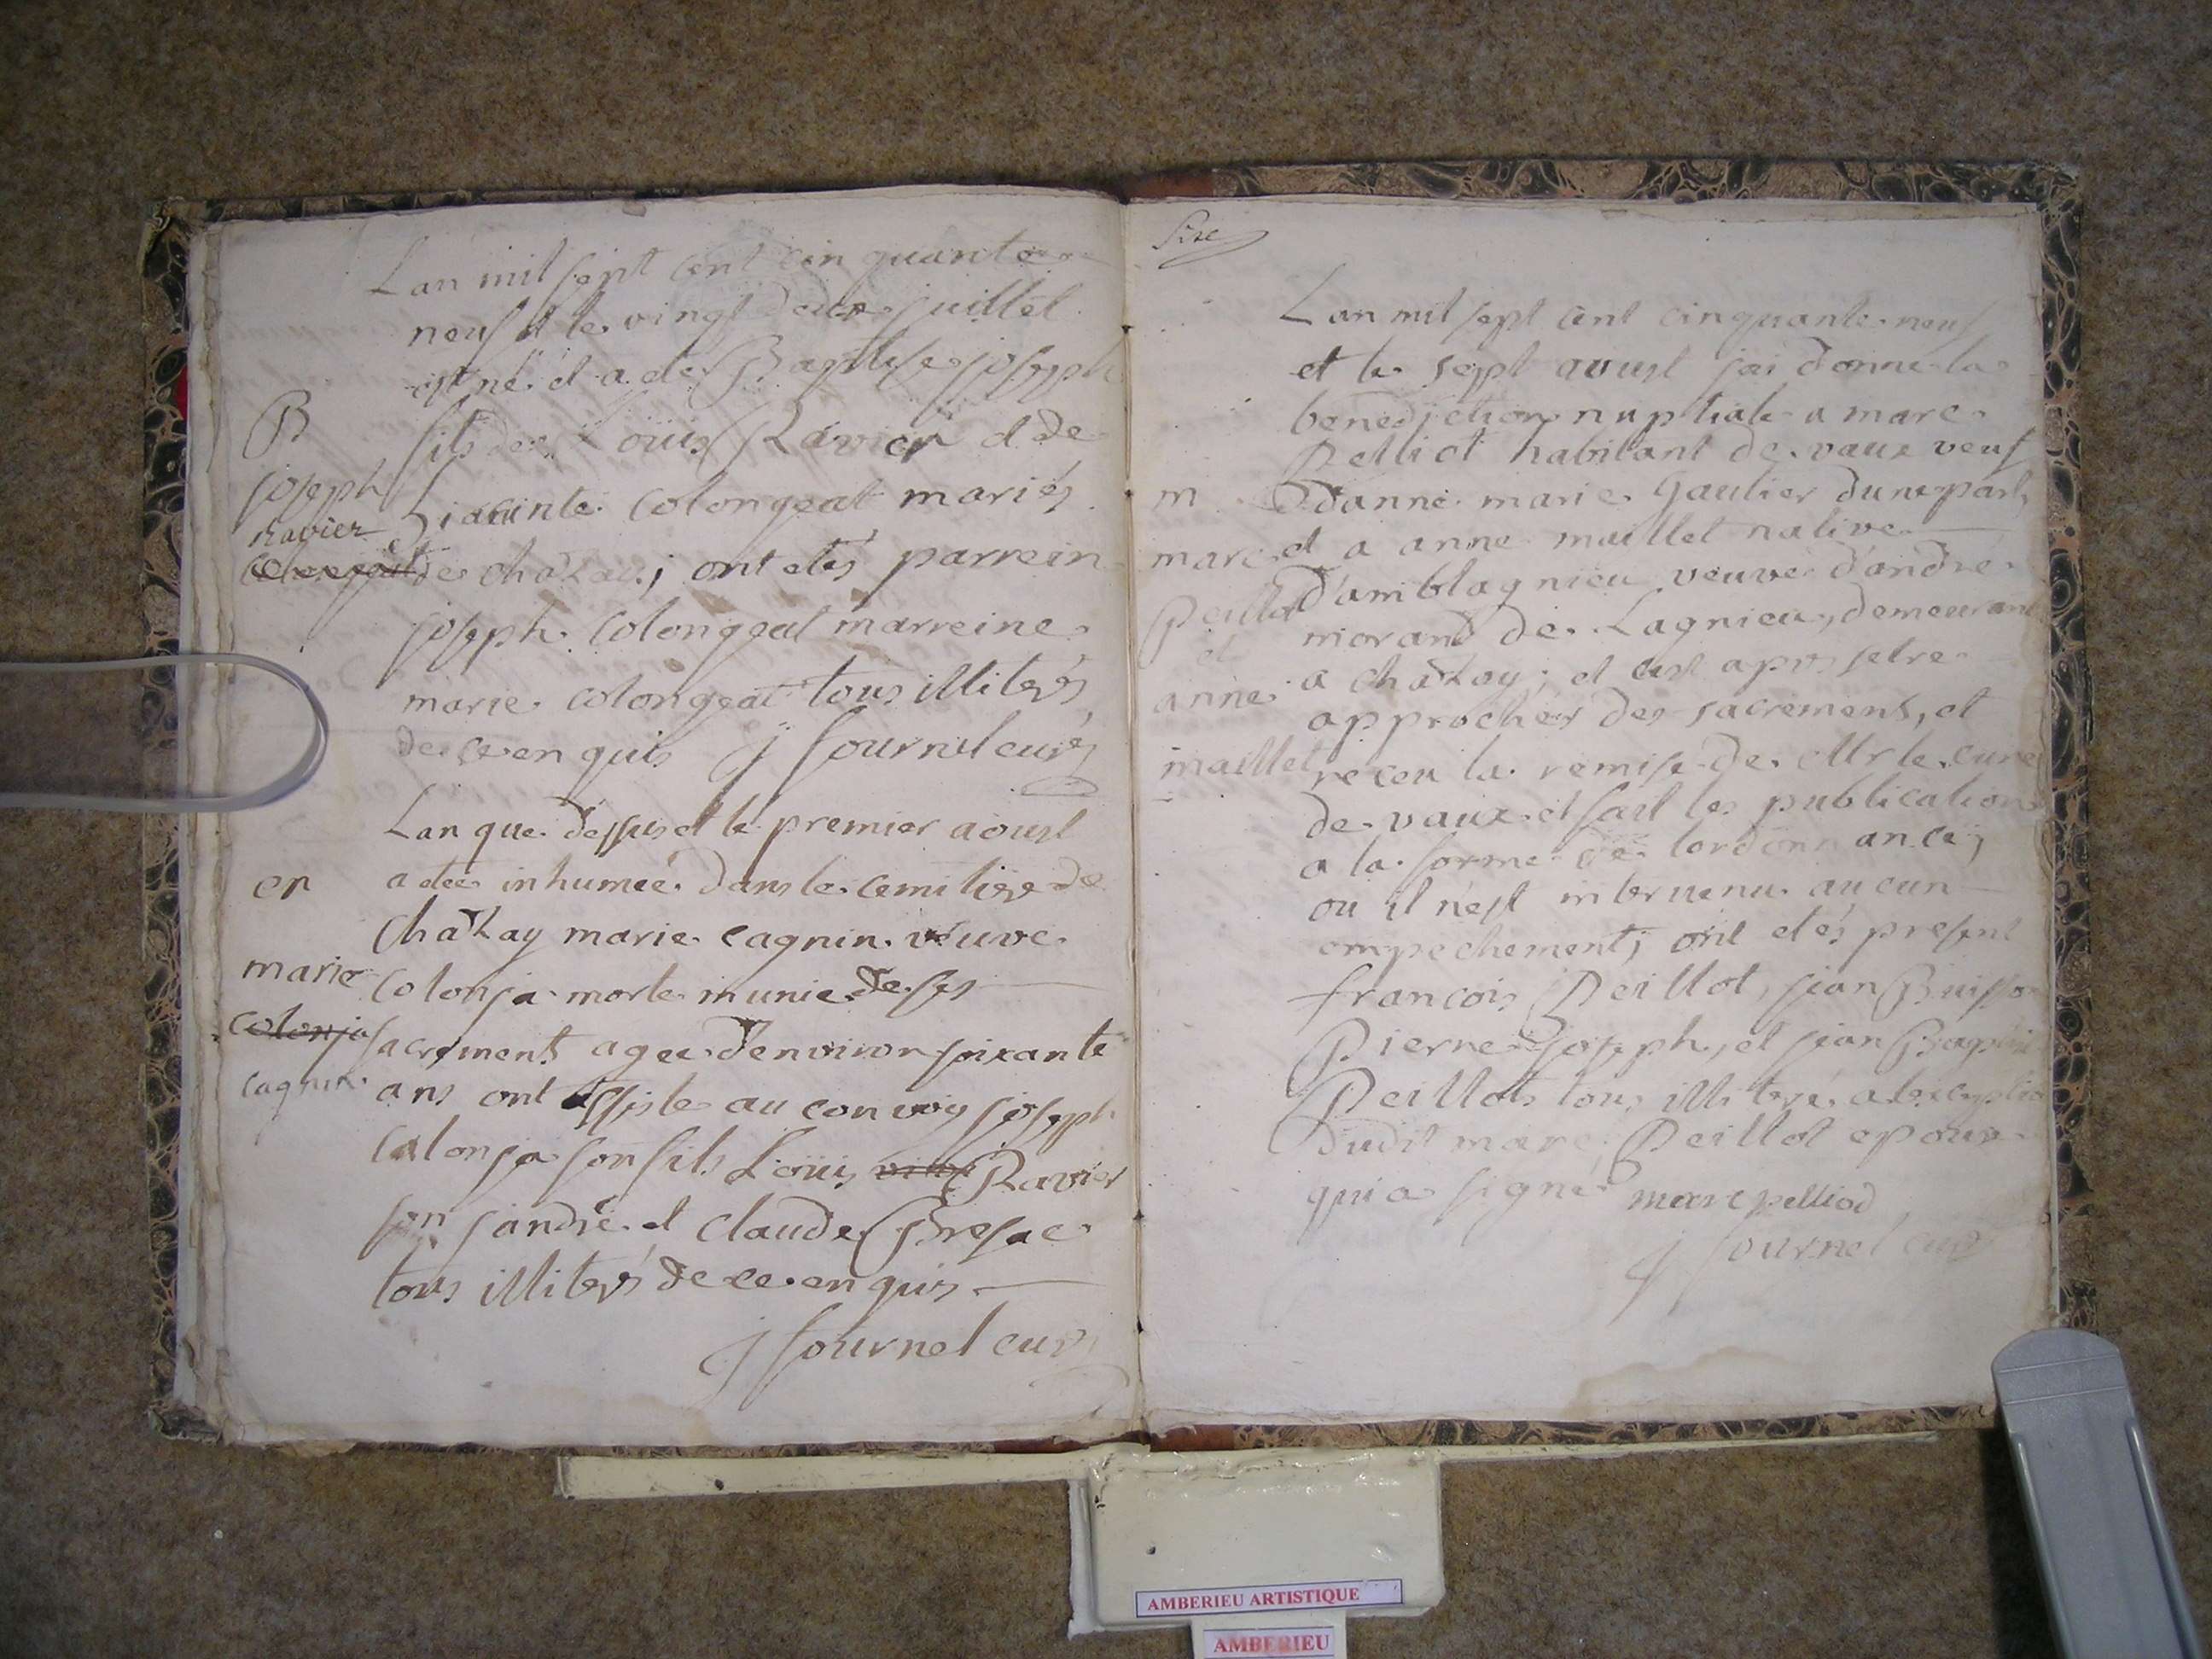 Lan mil sept cent cinquante
neuf et le vingt deux juillet
est né et a ete Baptise joseph
B
fils de Loüis Ravier et de
joseph
hiacinte Colongeat mariés
ravier
de chaZay; ont etés parrein
joseph Colongeat marreine
marie colongeat tous illiterés
de ce enquis j fournel curé
Lan que dessus et le premier aoust
en
a etée inhumée dans le cemitiere de
ChaZay marie cagnin veuve
marie
Colonja morte munie de ses
colonja
sacrement agee denviron soixante
cagnin
ans ont assiste au convoy joseph
Calonja son fils Loüis Ravier
son jandre et Claude Bresac
tous illiterés de ce enquis
j fournel curé
Size
Lan mil sept cent cinquante neuf
et le sept aoust jai donne la
benediction nuptiale a marc
Pelliot habitant de vaux veuf
m
danne marie Gautier dune part
et a anne maillet native
marc
d'amblagnieu veuve d'andré
Peillot
morand de Lagnieu, demeurant
et
a chaZay; et cest apres setre
anne
approchés des sacrements, et
maillet
receu la remise de Mr le curé
de vaux et fait les publications
a la forme de lordonnance;
ou il n'est intervenu aucun
empechement; ont etés present
francois Peillot, jean Buisso
Pierre joseph, et jean Baptis
Peillot tous illiteré a lexceptio
dudit marc Peillot epoux
qui a signé marc pelliod
j fournel curé
AMBERIEU ARTISTIQUE
AMBERIEU